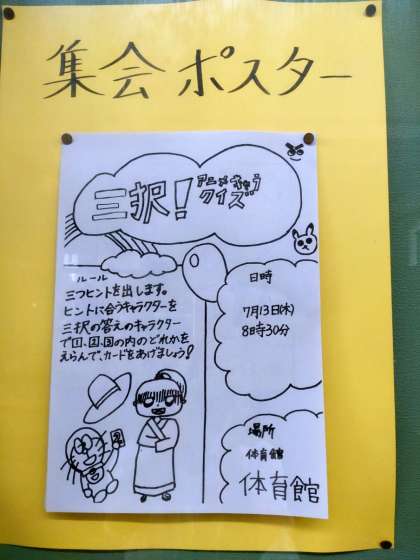 集会ポスター
三択!アニメキャラ
クイズ
ルール
三つヒントを出します。
ヒントに合うキャラクターを
三択の答えのキャラクター
で1、2、3の内のどれかを
えらんで、カードをあげましょう!
日時
7月13日(木)
8時30分
場所
体育館
体育館